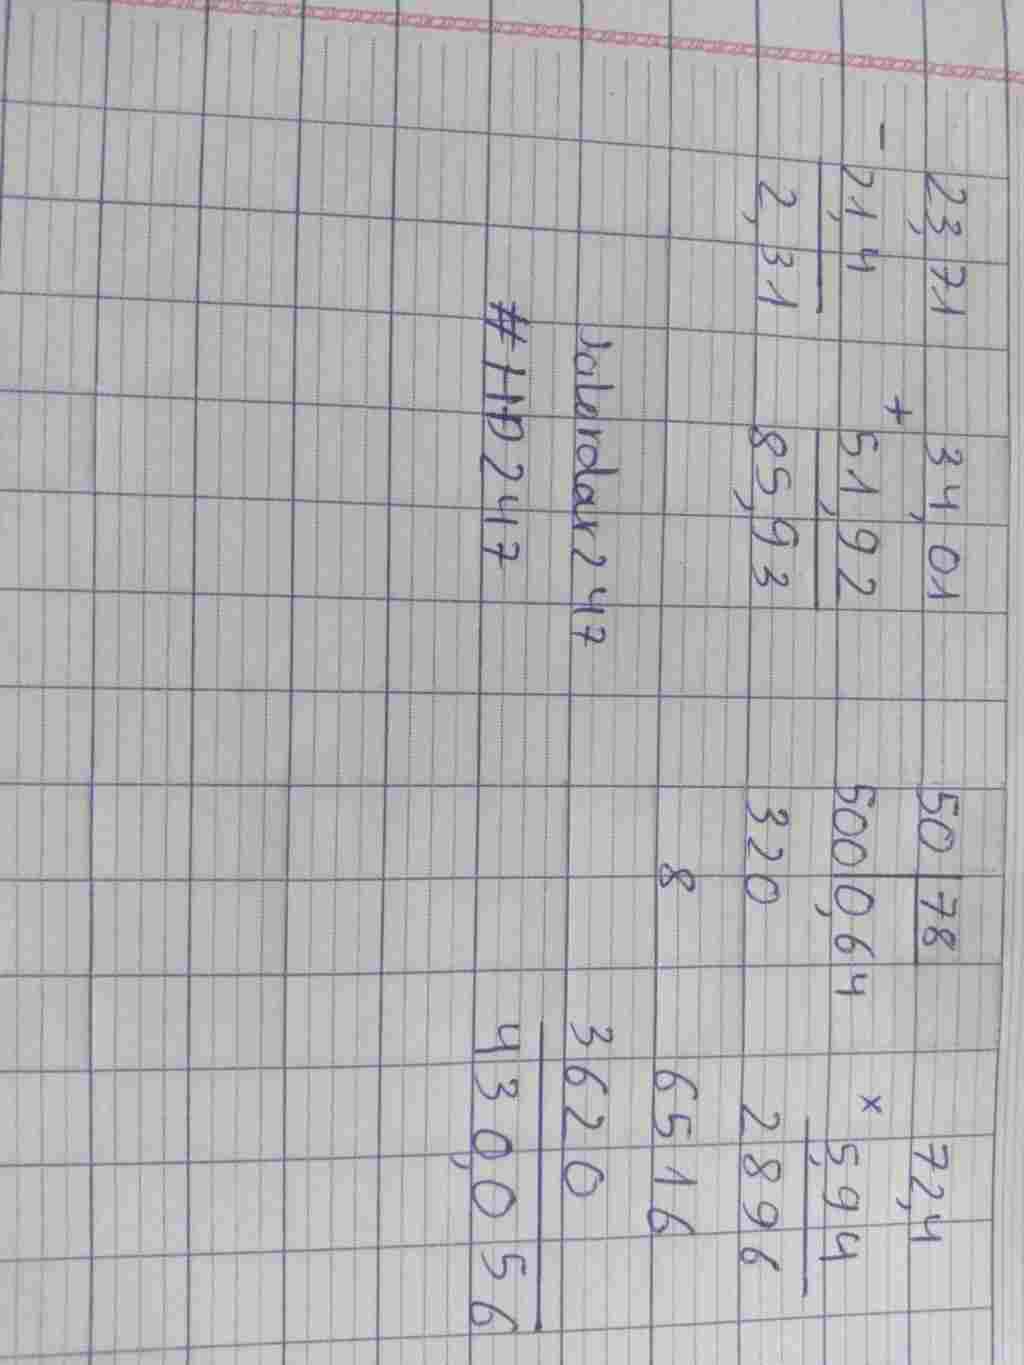 23,71
- 21,4
2,31
34,01
+ 51,92
85,93
50 78
500 0,64
320
8
72,4
x 5,94
2896
6516
3620
430,056
Jalerdar247
#HD247